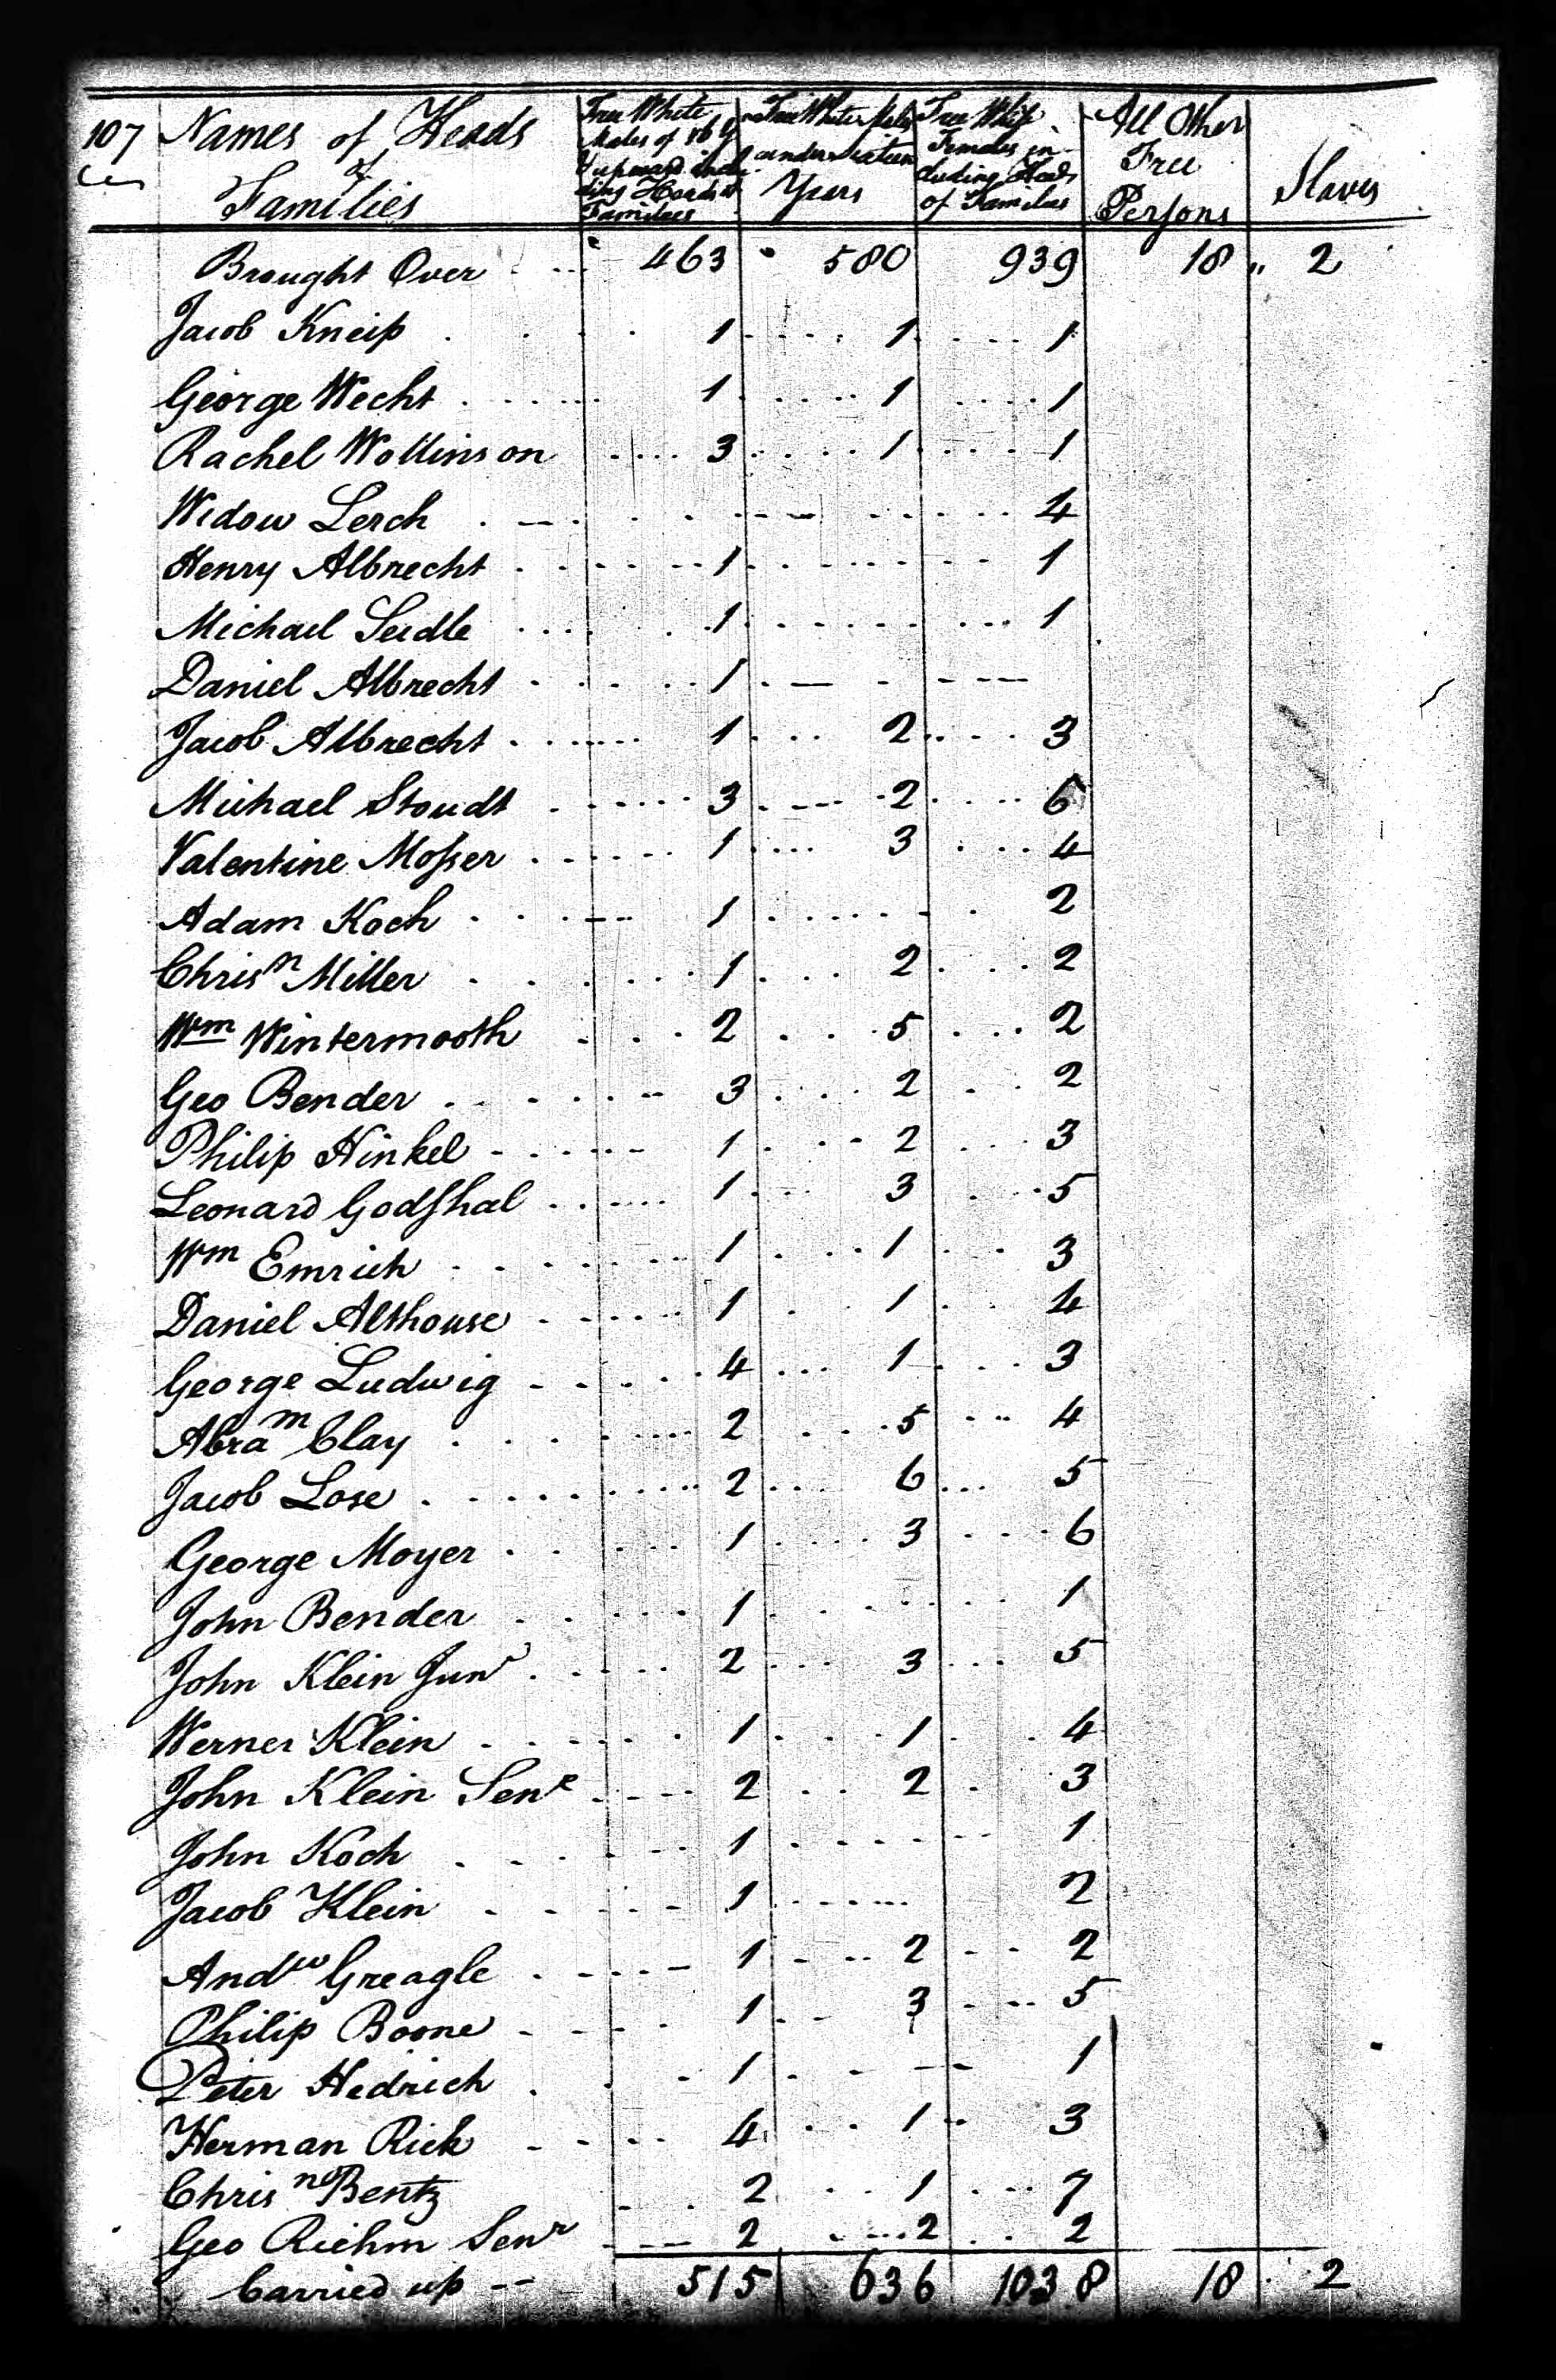 107 Names of Heads of Families | Free White Males of 16 Y & upward including Heads of Families | Free White Males under Sixteen Years | Free White Females including Heads of Families | All Other Free Persons | Slaves
Brought Over 463 580 939 18 2
Jacob Kneip 1 1 1
George Wecht 1 1 1
Rachel Wollinson 3 1 1
Widow Lerch 4
Henry Albrecht 1 1
Michael Seidle 1 1
Daniel Albrecht 1
Jacob Albrecht 1 2 3
Michael Stoudt 3 2 6
Valentine Mosser 1 3 4
Adam Koch 1 2
Chrisn Miller 1 2 2
Wm Wintermooth 2 5 2
Geo Bender 3 2 2
Philip Hinkel 1 2 3
Leonard Godshal 1 3 5
Wm Emrich 1 1 3
Daniel Althouse 1 1 4
George Ludwig 4 1 3
Abram Clay 2 5 4
Jacob Lose 2 6 5
George Moyer 1 3 6
John Bender 1 1
John Klein Junr 2 3 5
Werner Klein 1 1 4
John Klein Senr 2 2 3
John Koch 1 1
Jacob Klein 1 2
Andw Greagle 1 2 2
Philip Boone 1 3 5
Peter Hedrich 1 1
Herman Rick 4 1 3
Chrisn Bentz 2 1 7
Geo Riehm Senr 2 2 2
Carried up 515 636 1038 18 2